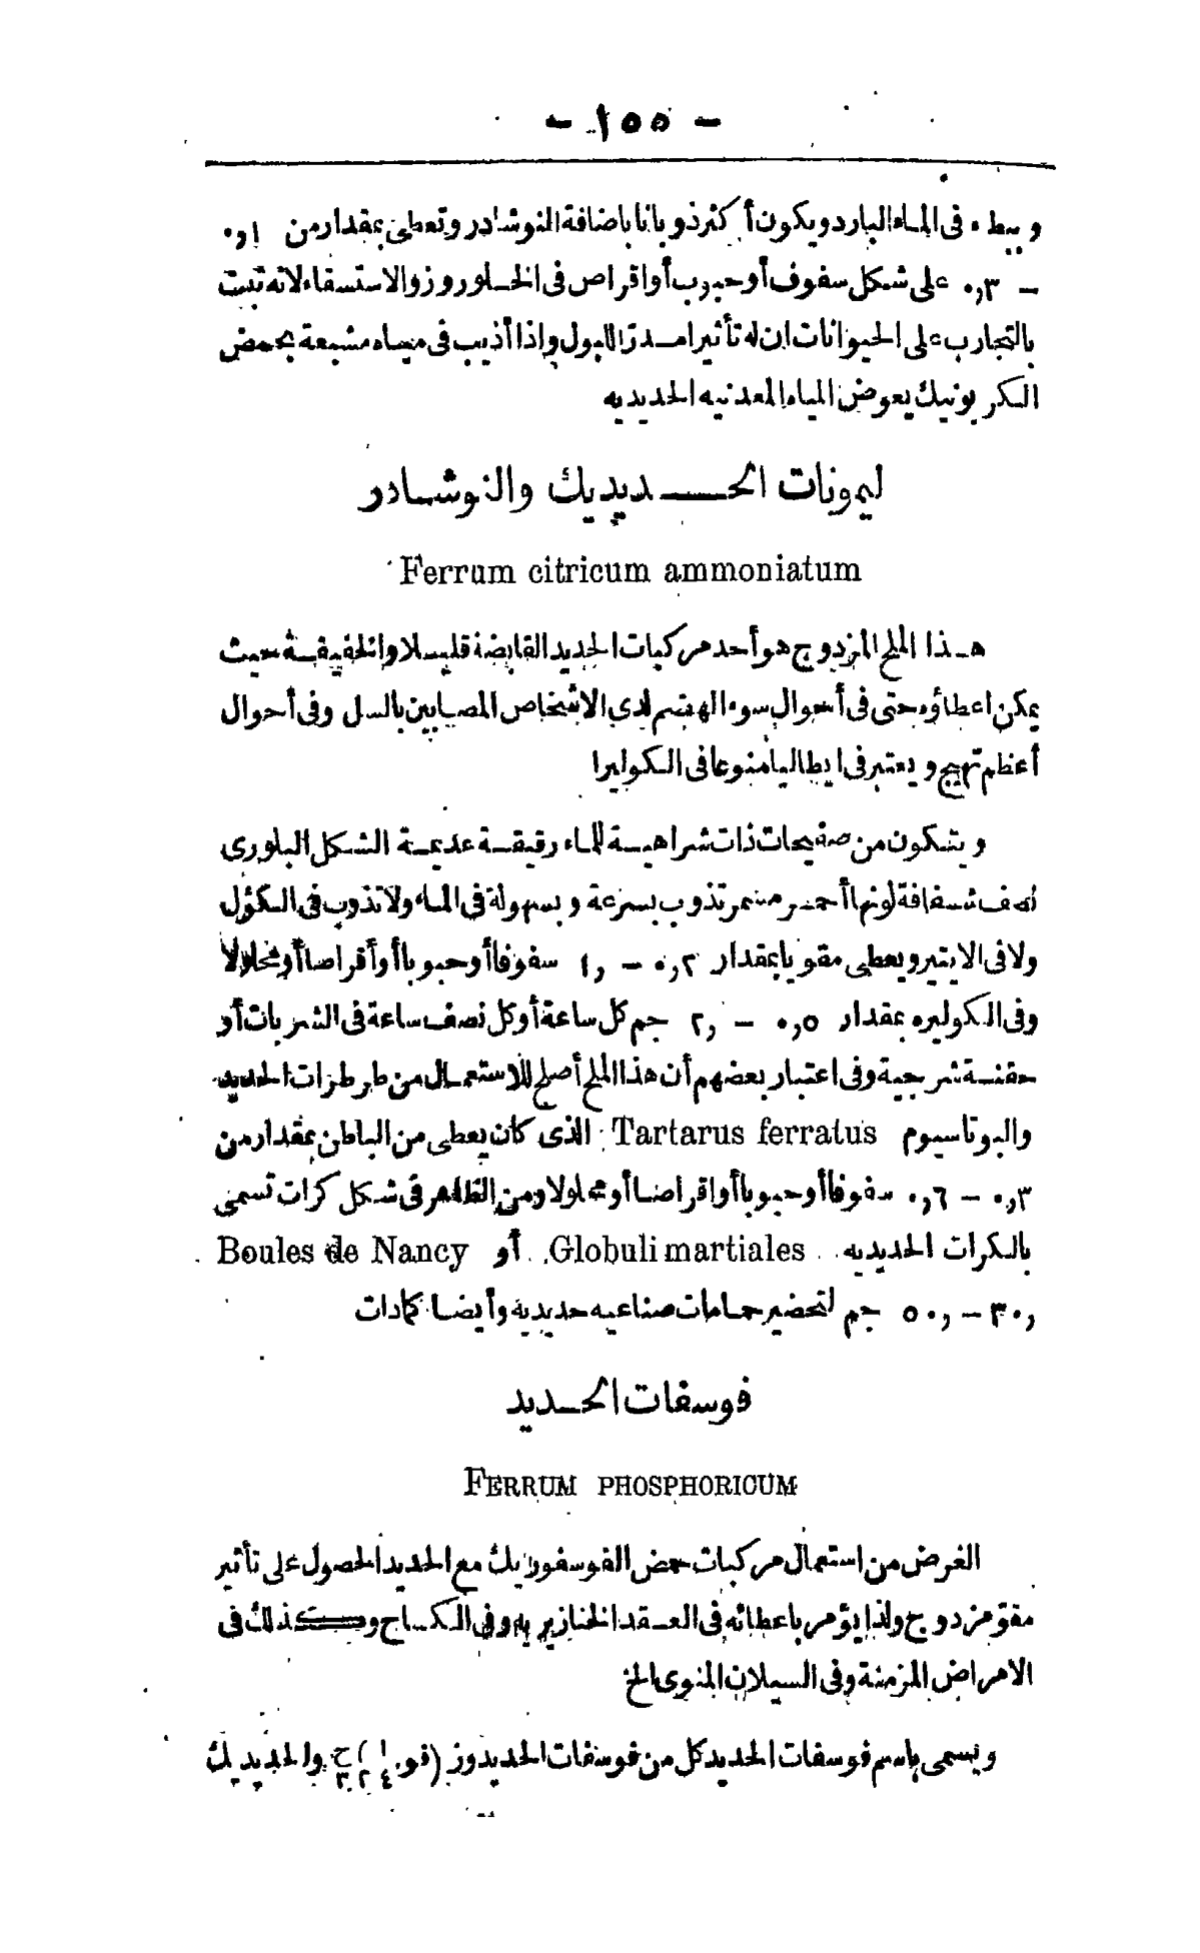 - ١٥٥ -
وببطء فى الماء البارد ويكون أكثر ذوبانا باضافة النوشادر وتعطى بمقدار من ٠٫١
- ٠٫٣ على شكل سفوف أوحبوب أواقراص فى الخلوروز والاستسقاء لانه ثبت
بالتجارب على الحيوانات ان له تأثيرا مدرّا للبول واذا أذيب فى مياه مشبعة بحمض
الكربونيك يعوض المياه المعدنيه الحديديه
ليمونات الحديديك والنوشادر
Ferrum citricum ammoniatum
هذا الملح المزدوج هو أحد مركبات الحديد القابضة قليلا والخفيفة حيث
يمكن اعطاؤه حتى فى أحوال سوء الهضم لدى الاشخاص المصابين بالسل وفى أحوال
أعظم تهيج ويعتبر فى ايطاليا منوعا فى الكوليرا
ويتكون من صفيحات ذات شراهية للماء رقيقة عديمة الشكل البلورى
نصف شفافة لونها أحمر مسمر تذوب بسرعة وبسهولة فى الماء ولا تذوب فى الكؤل
ولا فى الايتير ويعطى مقويا بمقدار ٠٫٢ - ١٫ سفوفا أوحبوبا أوأقراصا أومحلولا
وفى الكوليره بمقدار ٠٫٥ - ٢٫ جم كل ساعة أوكل نصف ساعة فى الشربات أو
حقنة شرجية وفى اعتبار بعضهم أن هذا الملح أصلح للاستعمال من طرطرات الحديد
والبوتاسيوم Tartarus ferratus الذى كان يعطى من الباطن بمقدار من
٠٫٣ - ٠٫٦ سفوفا أوحبوبا أواقراصا أومحلولا ومن الظاهر فى شكل كرات تسمى
بالكرات الحديديه Globuli martiales أو Boules de Nancy
٣٠٫ - ٥٠٫ جم لتحضير حمامات صناعيه حديدية وأيضا كمادات
فوسفات الحديد
FERRUM PHOSPHORICUM
الغرض من استعمال مركبات حمض الفوسفوريك مع الحديد الحصول على تأثير
مقو مزدوج ولذا يؤمر باعطائه فى العقد الخنازيريه وفى الكساح وكذلك فى
الامراض المزمنة وفى السيلان المنوى الخ
ويسمى باسم فوسفات الحديد كل من فوسفات الحديدوز (فو ا٤)٢ ح٣ والحديديك